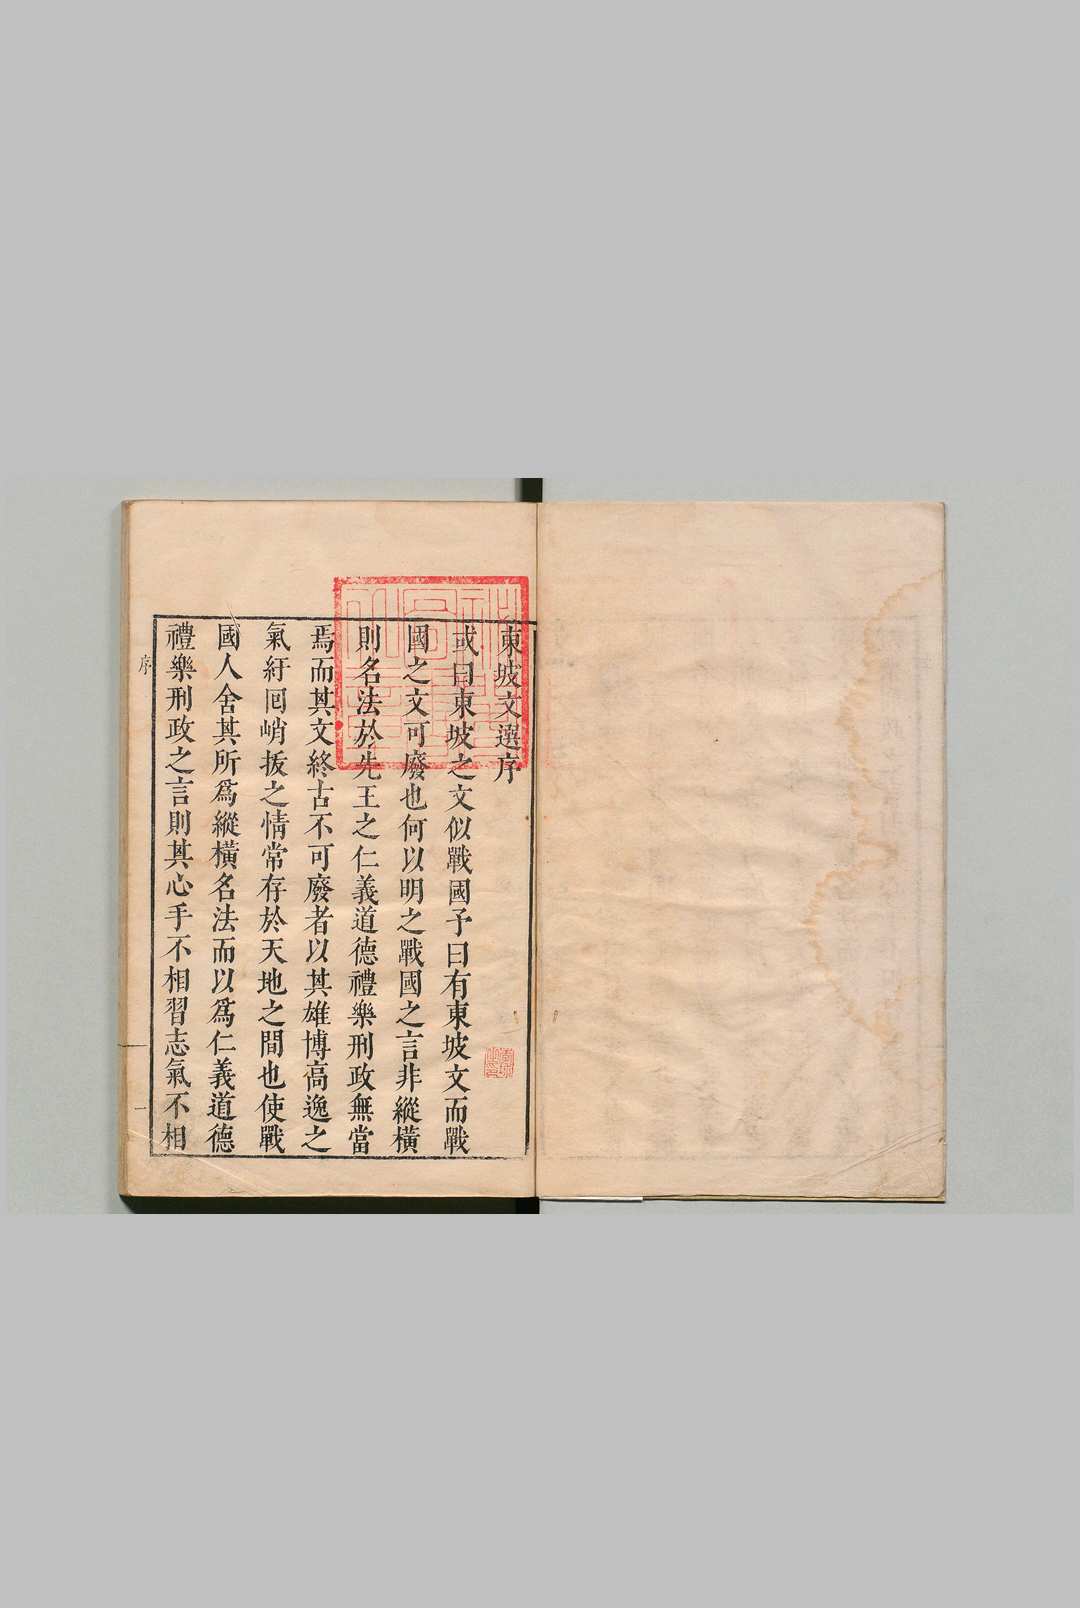 東坡文選序
或曰東坡之文似戰國予曰有東坡文而戰
國之文可廢也何以明之戰國之言非縱橫
則名法於先王之仁義道德禮樂刑政無當
焉而其文終古不可廢者以其雄博高逸之
氣紆回峭拔之情常存於天地之間也使戰
國人舍其所爲縱橫名法而以爲仁義道德
禮樂刑政之言則其心手不相習志氣不相
序
一